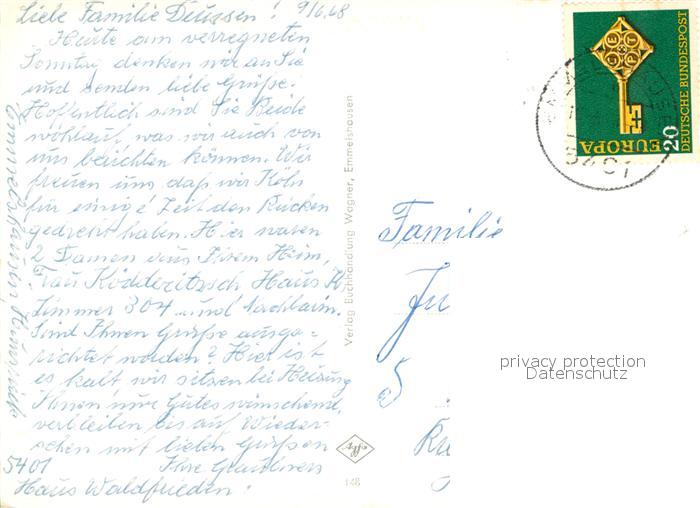 Liebe Familie Deussen! 9/6.68
Heute am verregneten
Sonntag denken wir an Sie
und senden liebe Grüße.
Hoffentlich sind Sie Beide
wohlauf, was wir auch von
uns berichten können. Wir
freuen uns daß wir Köln
für einige Zeit den Rücken
gedreht haben. Hier waren
2 Damen aus Ihrem Heim,
Frau Ködderitzsch Haus K
Zimmer 304 und Nachbarin.
Sind Ihnen Grüße ausge=
richtet worden? Hier ist
es kalt, wir sitzen bei Heizung
Ihnen nur Gutes wünschend,
verbleiben bis auf Wieder-
sehen mit lieben Grüßen
5401 Ihre
Haus Waldfrieden.
Emmelshausen Hunsrück
Verlag Buchhandlung Wagner, Emmelshausen
Agfa
148
EUROPA
20
DEUTSCHE BUNDESPOST
CEPT
5401
Familie
Ju
5
privacy protection
Datenschutz